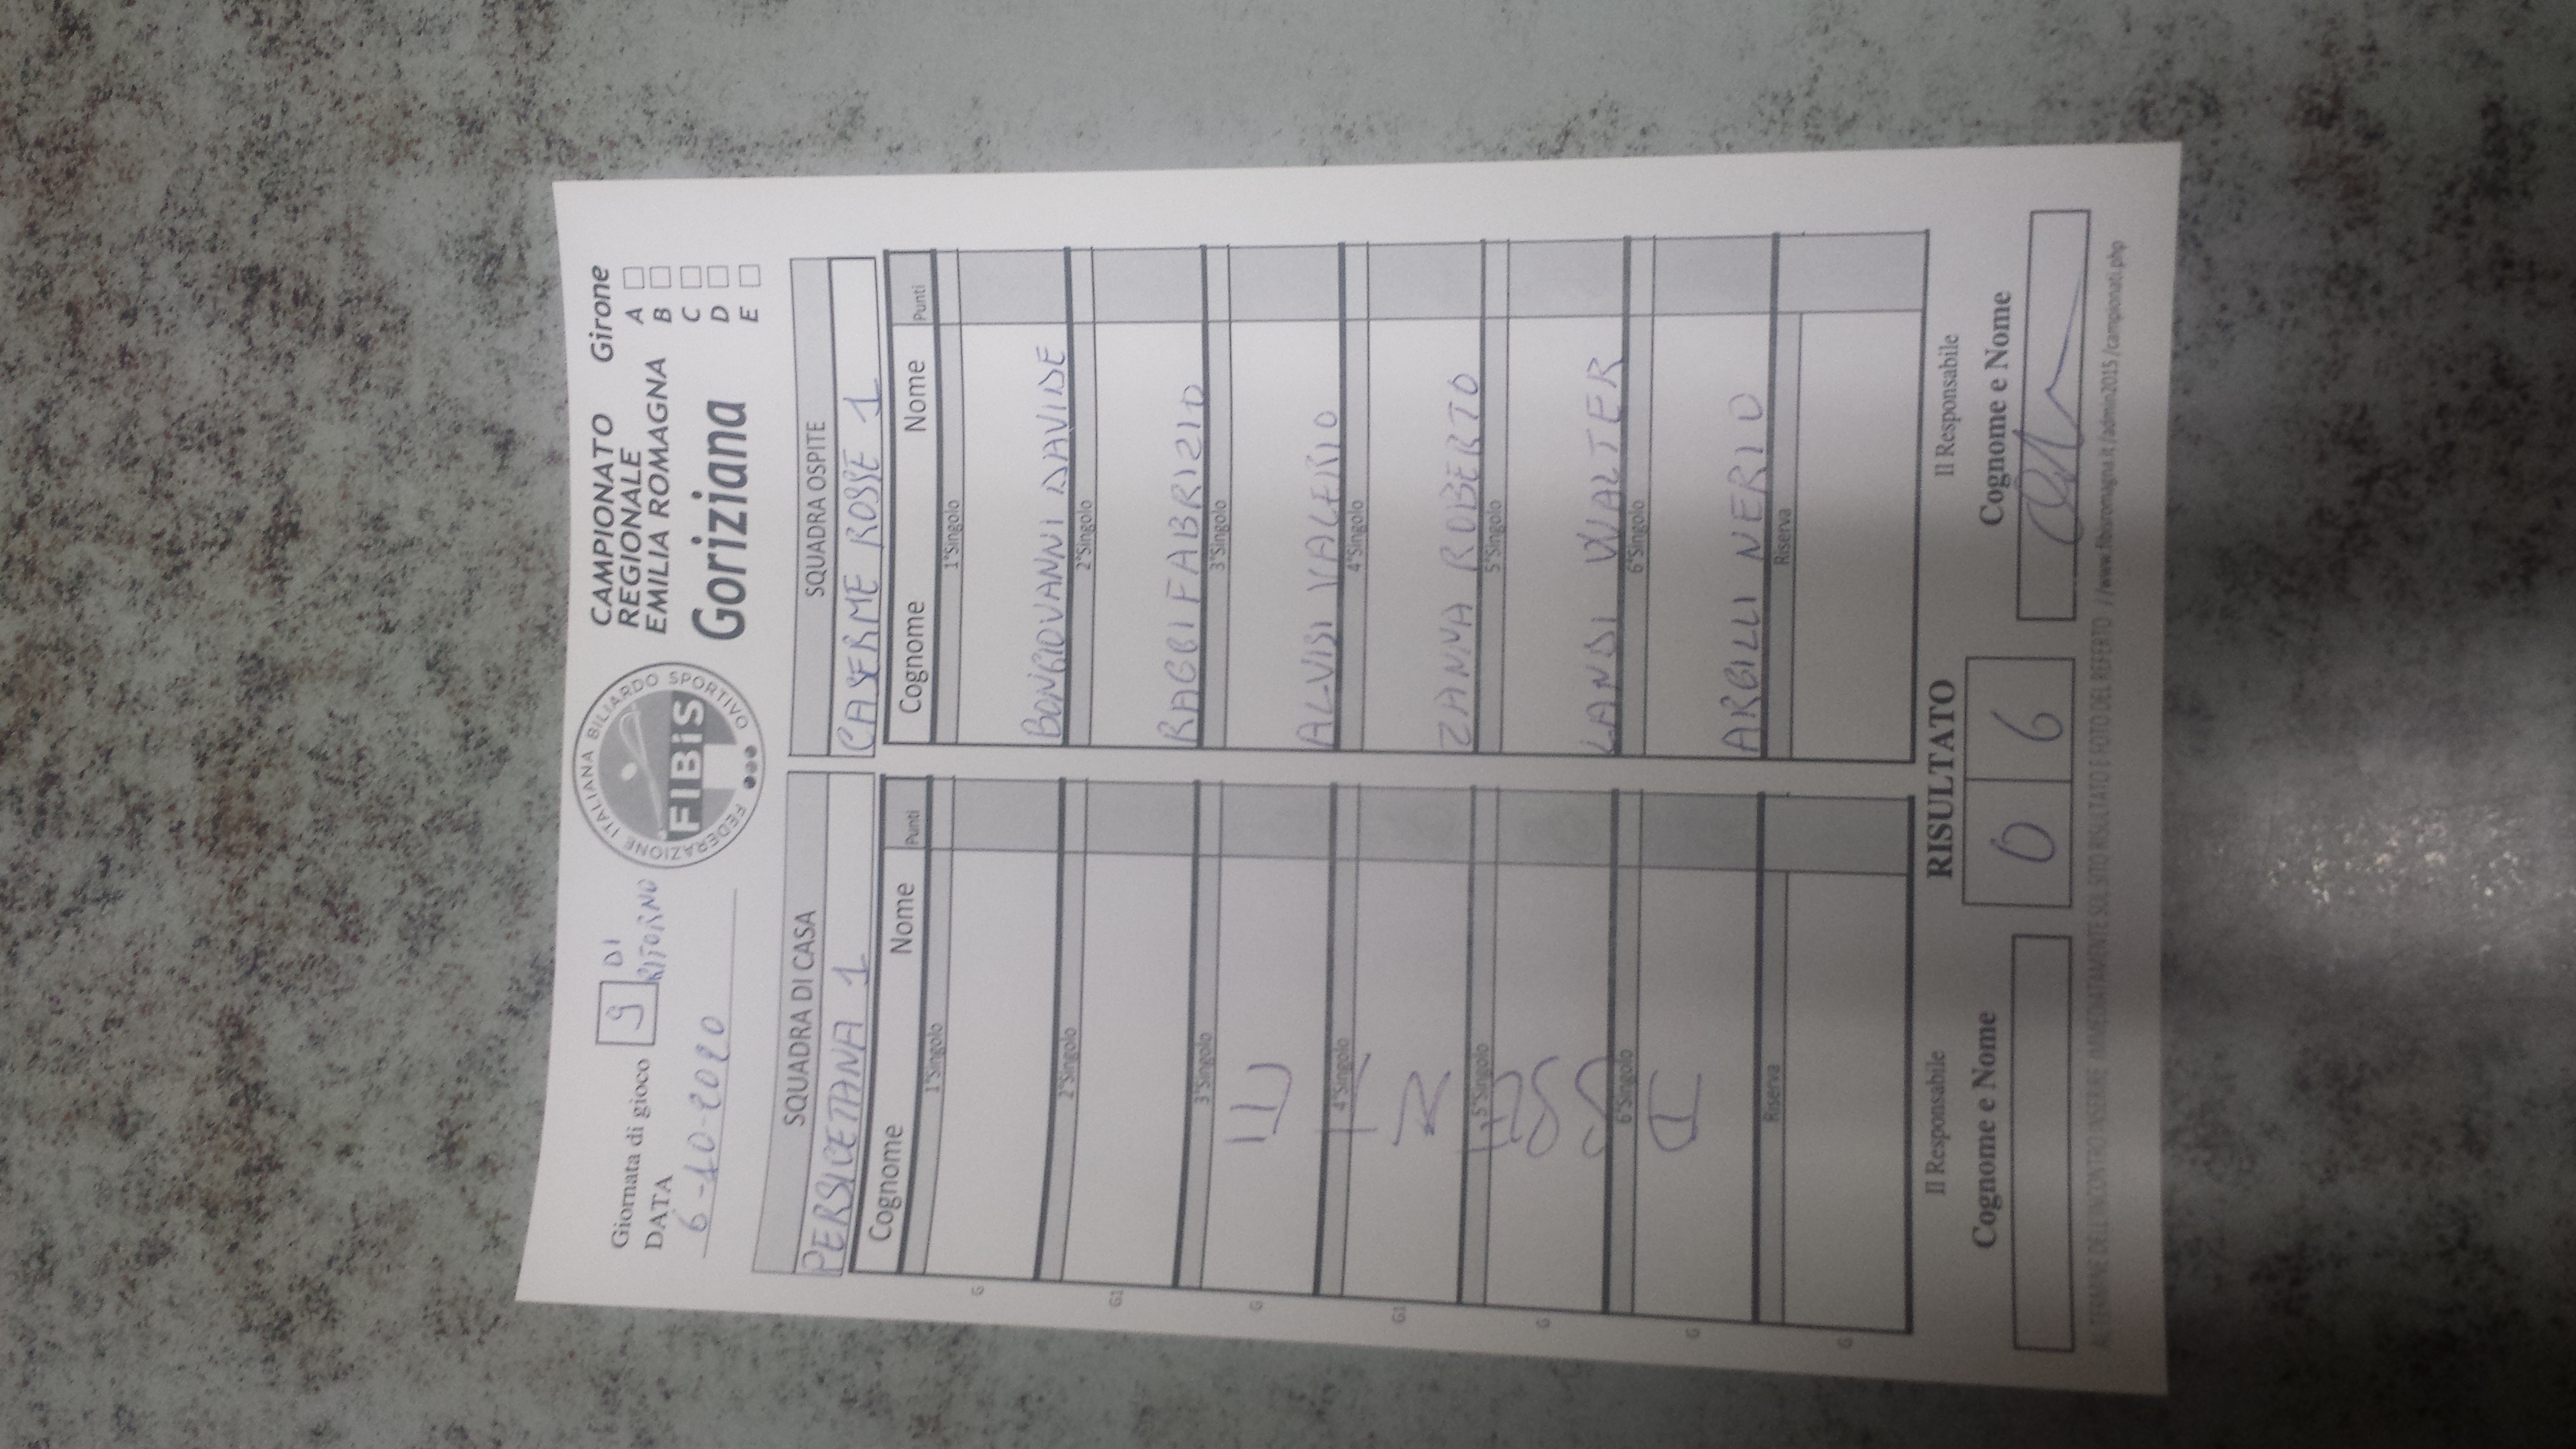 Giornata di gioco 9 DI RITORNO
DATA
6-10-2020
FEDERAZIONE ITALIANA BILIARDO SPORTIVO
FIBiS
CAMPIONATO
REGIONALE
EMILIA ROMAGNA
Goriziana
Girone
A
B
C
D
E
SQUADRA DI CASA
PERSICETANA 1
Cognome Nome Punti
1°Singolo
G
2°Singolo
G1
3°Singolo
G
4°Singolo
G1
5°Singolo
G
6°Singolo
G
Riserva
G
SQUADRA OSPITE
CASERME ROSSE 1
Cognome Nome Punti
1°Singolo
BONGIOVANNI DAVIDE
2°Singolo
RAGGI FABRIZIO
3°Singolo
ALVISI VALERIO
4°Singolo
ZANNA ROBERTO
5°Singolo
LANDI WALTER
6°Singolo
ARGILLI NERIO
Riserva
Il Responsabile
Cognome e Nome
RISULTATO
0 6
Il Responsabile
Cognome e Nome
AL TERMINE DELL'INCONTRO INSERIRE IMMEDIATAMENTE SUL SITO RISULTATO E FOTO DEL REFERTO //www.fibisromagna.it/admin2015/campionati.php